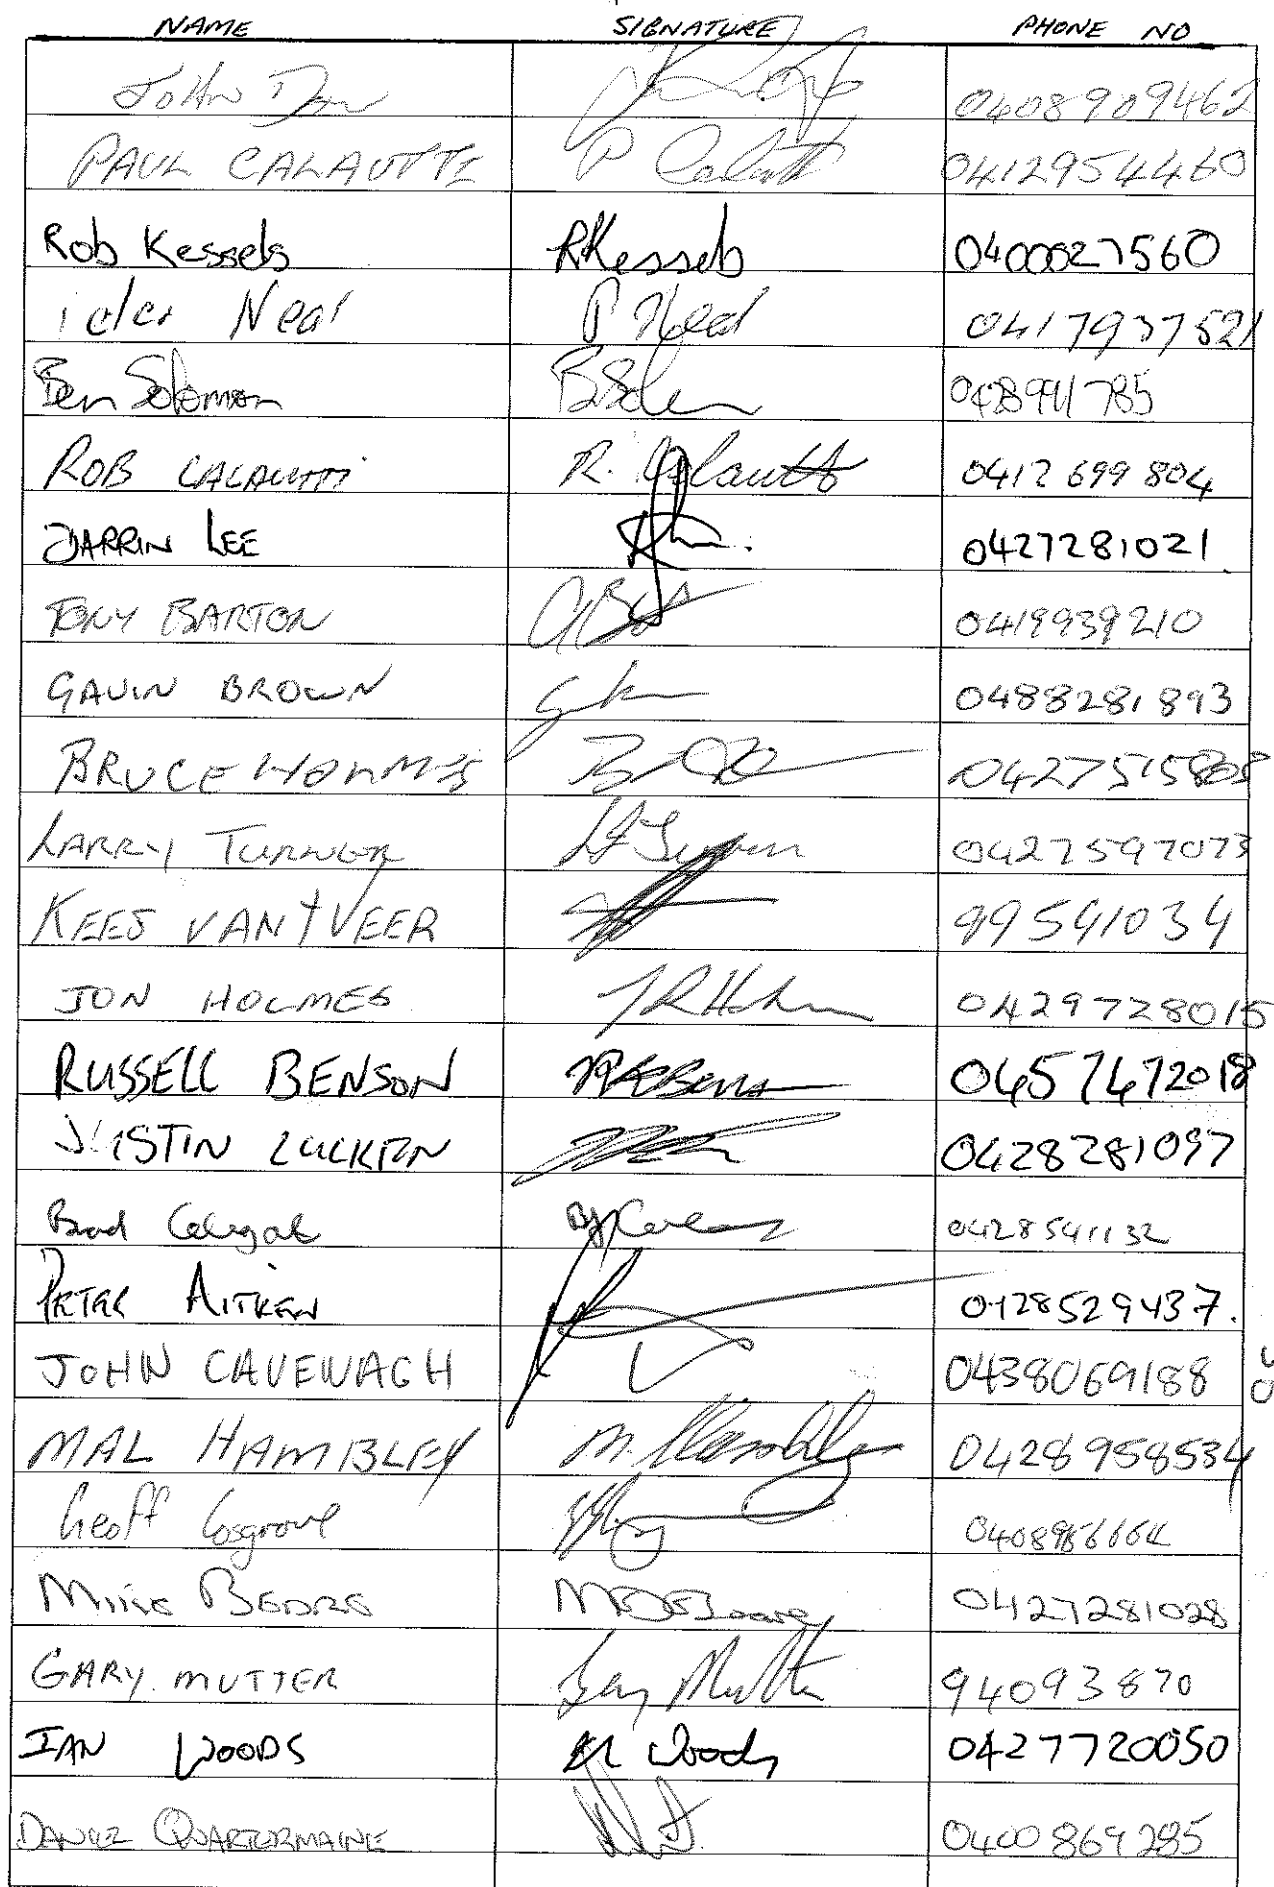 NAME SIGNATURE PHONE NO
John 0408909462
PAUL CALAUTTI P Calautti 0412954460
Rob Kessels RKessels 0400027560
Neal P Neal 0417937521
Ben Solomon 
ROB CALAUTTI R. Calautti 0412 699 804
DARRIN LEE 0427281021.
TONY BARTON 0419939210
GAVIN BROWN 0488281893
BRUCE HOLMES
LARRY TURNER 0427597073
KEES VAN'T VEER 99541034
JON HOLMES JRHolmes 0429728015
RUSSELL BENSON 0457472018
JUSTIN LUCKEN 0428281097
Brad 0428541132
PETER AITKEN 0428529437.
JOHN CAVENAGH 0438069188
MAL HAMBLEY M. Hambley 0428958534
Geoff Cosgrove
Mike 0427281028
GARY MUTTER Gary Mutter 94093870
IAN WOODS Woods 0427720050
QUARTERMAINE 0400869285